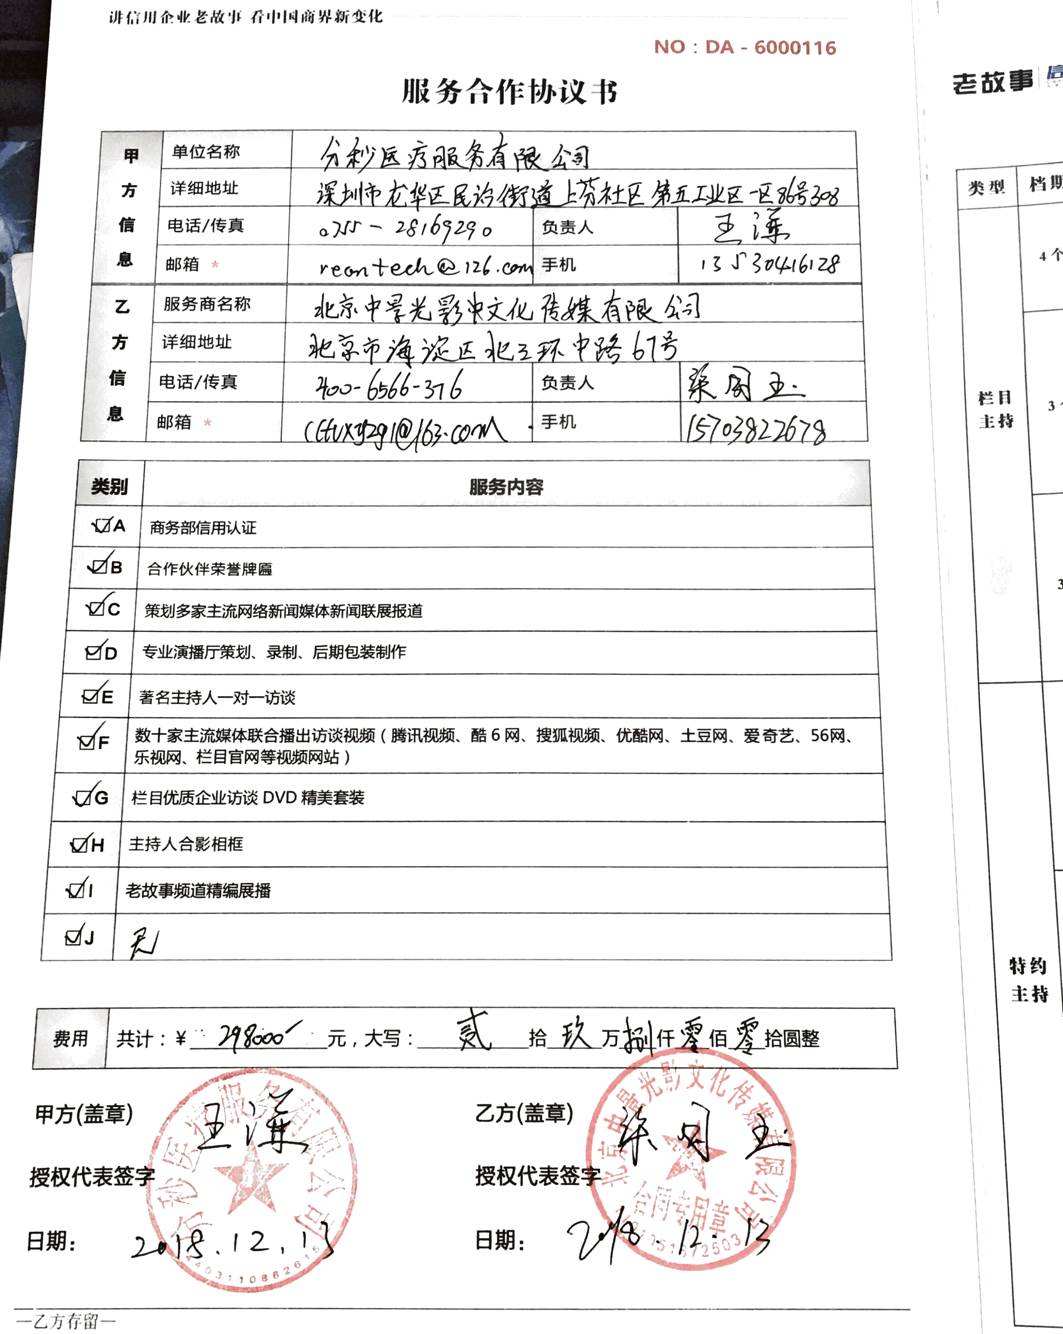 讲信用企业老故事 看中国商界新变化
NO：DA - 6000116
服务合作协议书
甲方信息
单位名称 分秒医疗服务有限公司
详细地址 深圳市龙华区民治街道上芬社区第五工业区一区86号308
电话/传真 0755-28169290 负责人 王
邮箱 * reontech@126.com 手机 13530416128
乙方信息
服务商名称 北京中景光影文化传媒有限公司
详细地址 北京市海淀区北三环中路67号
电话/传真 400-6566-376 负责人
邮箱 * @163.com 手机 15703822678
类别 服务内容
A 商务部信用认证
B 合作伙伴荣誉牌匾
C 策划多家主流网络新闻媒体新闻联展报道
D 专业演播厅策划、录制、后期包装制作
E 著名主持人一对一访谈
F 数十家主流媒体联合播出访谈视频（腾讯视频、酷6网、搜狐视频、优酷网、土豆网、爱奇艺、56网、
乐视网、栏目官网等视频网站）
G 栏目优质企业访谈 DVD 精美套装
H 主持人合影相框
I 老故事频道精编展播
J 无
费用 共计：¥ 298000 元，大写： 贰 拾 玖 万 捌 仟 零 佰 零 拾圆整
甲方(盖章)
授权代表签字
日期: 2018.12.13
分秒医疗服务有限公司
乙方(盖章)
授权代表签字
日期: 2018.12.13
北京中景光影文化传媒有限公司
合同专用章
—乙方存留—
老故事 信
类型 档期
栏目
主持
4个
3
特约
主持